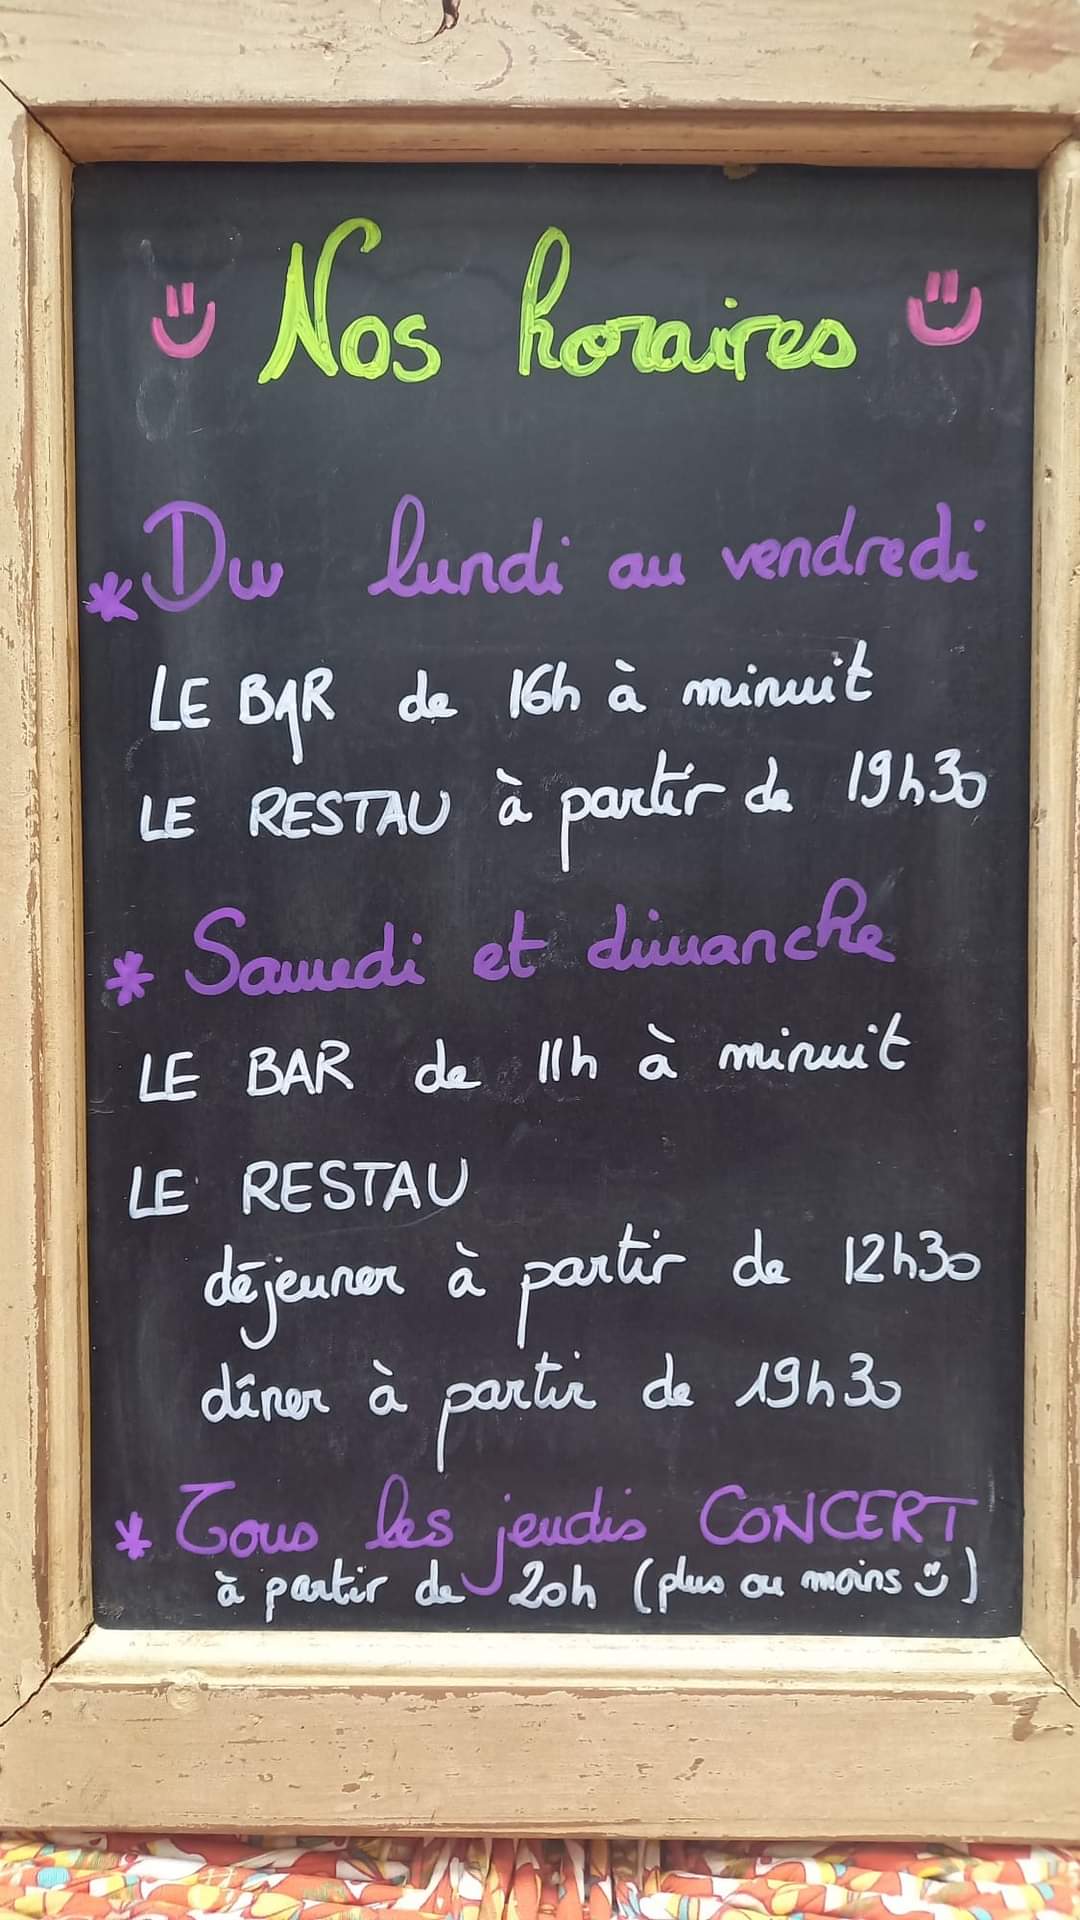 Nos horaires
* Du lundi au vendredi
LE BAR de 16h à minuit
LE RESTAU à partir de 19h30
* Samedi et dimanche
LE BAR de 11h à minuit
LE RESTAU
déjeuner à partir de 12h30
dîner à partir de 19h30
* Tous les jeudis CONCERT
à partir de 20h (plus ou moins)